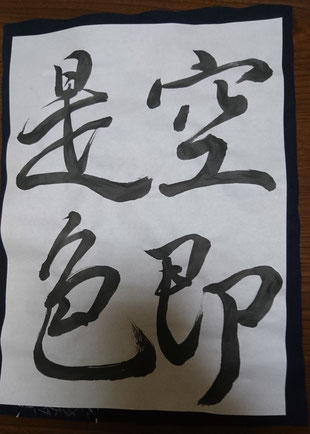 空即
是色